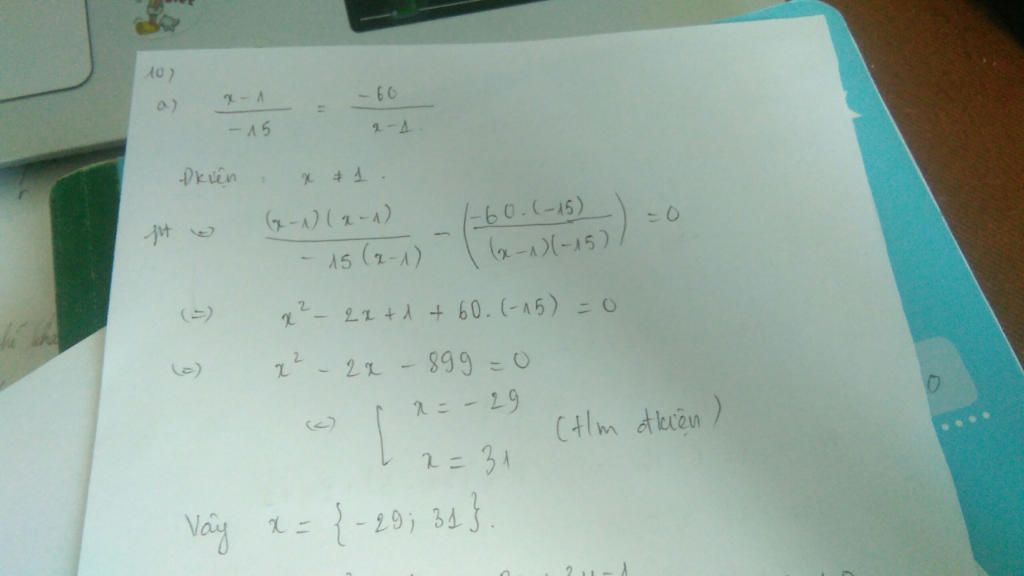 10)
a) \frac{x-1}{-15} = \frac{-60}{x-1}
Đkiện : x ≠ 1.
pt ⇔ \frac{(x-1)(x-1)}{-15(x-1)} - \left(\frac{-60.(-15)}{(x-1)(-15)}\right) = 0
(=) x² - 2x + 1 + 60.(-15) = 0
(=) x² - 2x - 899 = 0
⇔ [ x = -29
x = 31 (t/m đkiện)
Vậy x = {-29; 31}.